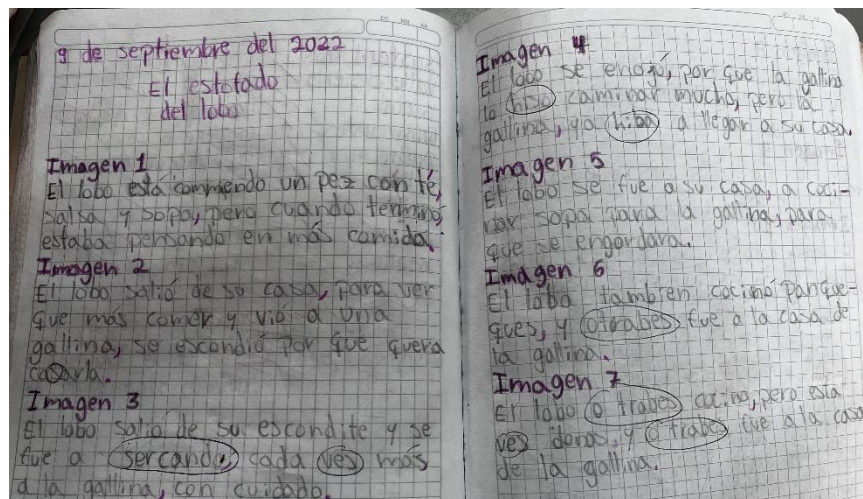 9 de septiembre del 2022
El estofado
del lobo
Imagen 1
El lobo está commendo un pez con té,
salsa y sopa, pero cuando terminó,
estaba pensando en más comida.
Imagen 2
El lobo salió de su casa, para ver
que más comer y vió a una
gallina, se escondió por que queria
casarla.
Imagen 3
El lobo salio de su escondite y se
fue a sercando, cada vés más
a la gallina, con cuidado.
Imagen 4
El lobo se enojó, por que la gallina
lo hiso caminar mucho, pero la
gallina, ya hiba a llegar a su casa.
Imagen 5
El lobo se fue a su casa, a coci-
nar sopa para la gallina, para
que se engordara.
Imagen 6
El lobo tambien cocinó panque-
ques, y otrabes fue a la casa de
la gallina.
Imagen 7
El lobo o trabes cocino, pero esta
ves donas, y o trabes fue a la casa
de la gallina.